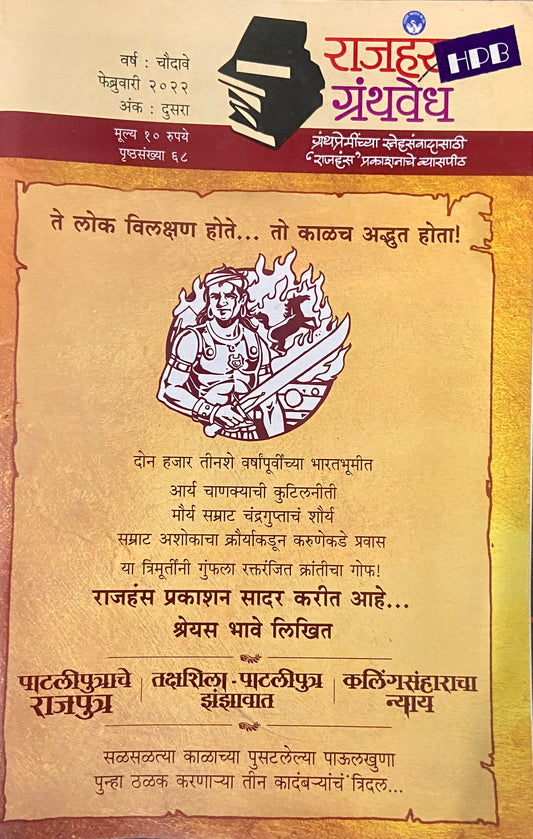 वर्ष : चौदावे
फेब्रुवारी २०२२
अंक : दुसरा
मूल्य १० रुपये
पृष्ठसंख्या ६८
राजहंस
HPB
ग्रंथवेध
ग्रंथप्रेमींच्या स्नेहसंवादासाठी
'राजहंस' प्रकाशनाचे व्यासपीठ
ते लोक विलक्षण होते... तो काळच अद्भुत होता!
दोन हजार तीनशे वर्षांपूर्वीच्या भारतभूमीत
आर्य चाणक्याची कुटिलनीती
मौर्य सम्राट चंद्रगुप्ताचं शौर्य
सम्राट अशोकाचा क्रौर्याकडून करुणेकडे प्रवास
या त्रिमूर्तींनी गुंफला रक्तरंजित क्रांतीचा गोफ!
राजहंस प्रकाशन सादर करीत आहे...
श्रेयस भावे लिखित
पाटलीपुत्राचे राजपुत्र
तक्षशिला - पाटलीपुत्र झंझावात
कलिंगसंहाराचा न्याय
सळसळत्या काळाच्या पुसटलेल्या पाऊलखुणा
पुन्हा ठळक करणाऱ्या तीन कादंबऱ्यांचं त्रिदल...